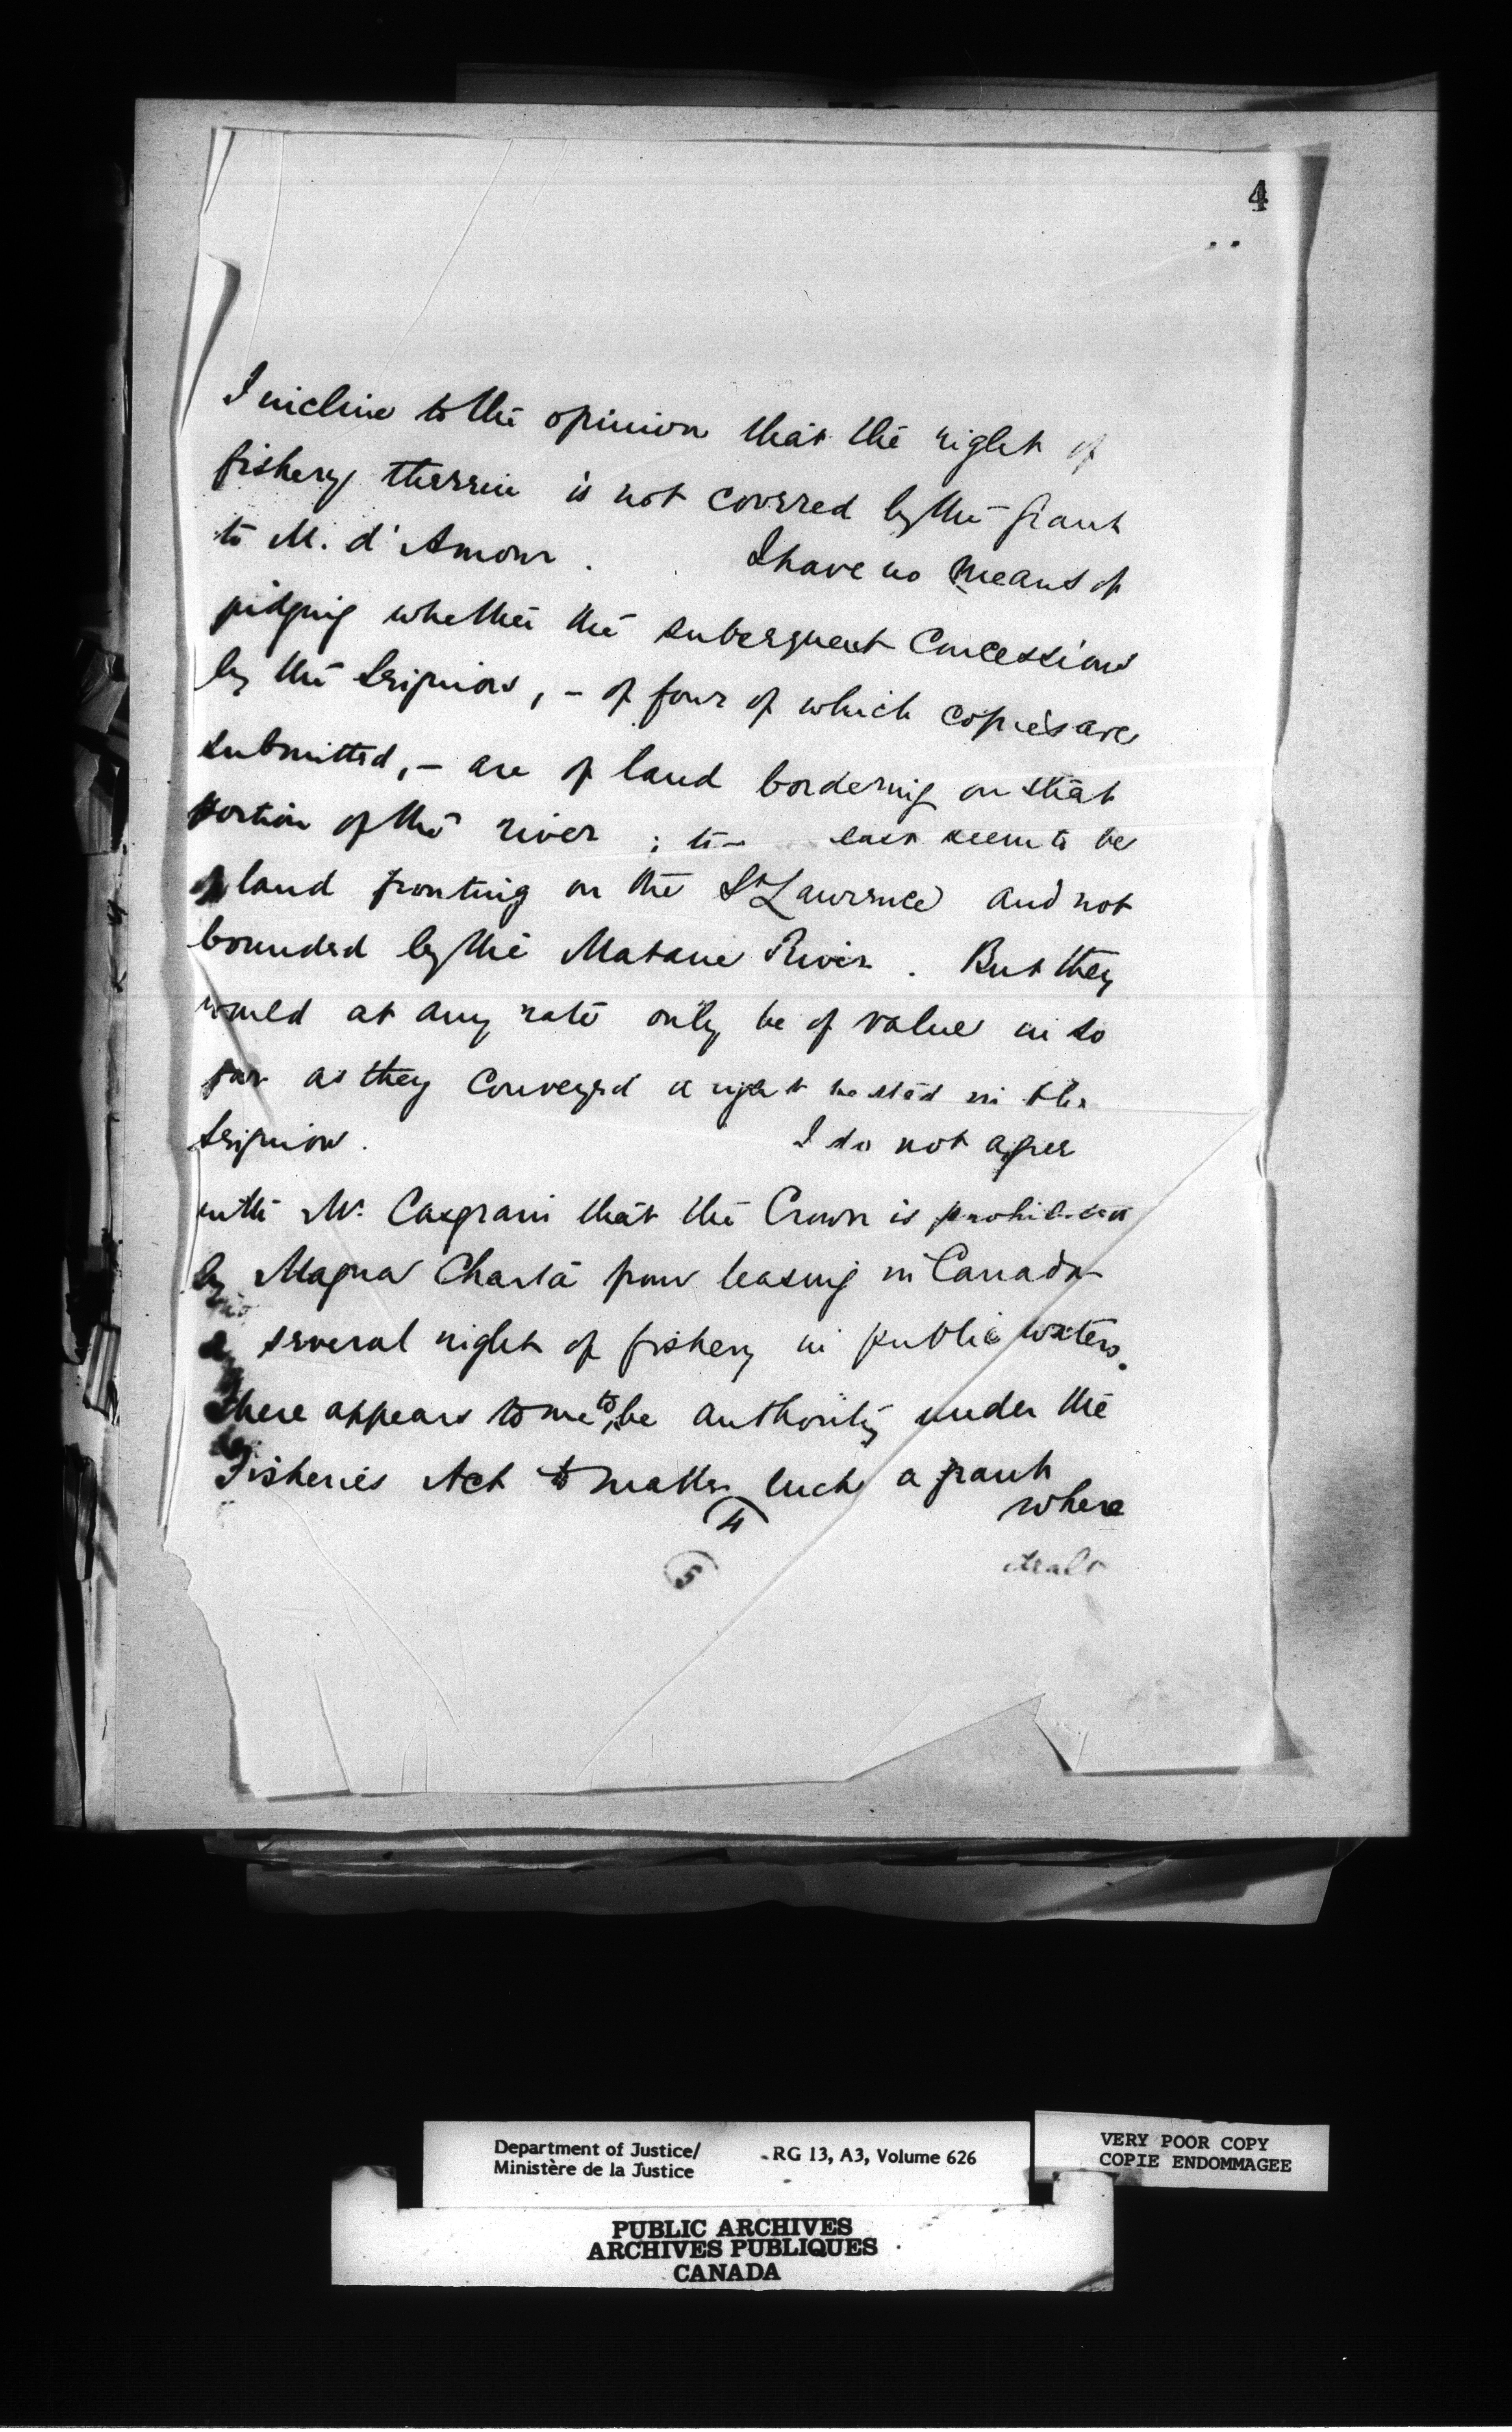 4
I incline to the opinion that the right of
fishery therein is not covered by the Grant
to M. d'Amour. I have no means of
judging whether the subsequent Concessions
by the Seigniors, - of four of which copies are
submitted, - are of land bordering on that
portion of the river ; last seem to be
of land fronting on the St Lawrence and not
bounded by the Matane River. But they
would at any rate only be of value in so
far as they conveyed a right vested in the
Seignior. I do not agree
with Mr. Casgrain that the Crown is prohibited
by Magna Charta from leasing in Canada
a several right of fishery in public waters.
There appears to me to be authority under the
Fisheries Act to make such a grant
where
(4)
(5)
Department of Justice/
Ministère de la Justice
RG 13, A3, Volume 626
VERY POOR COPY
COPIE ENDOMMAGEE
PUBLIC ARCHIVES
ARCHIVES PUBLIQUES
CANADA